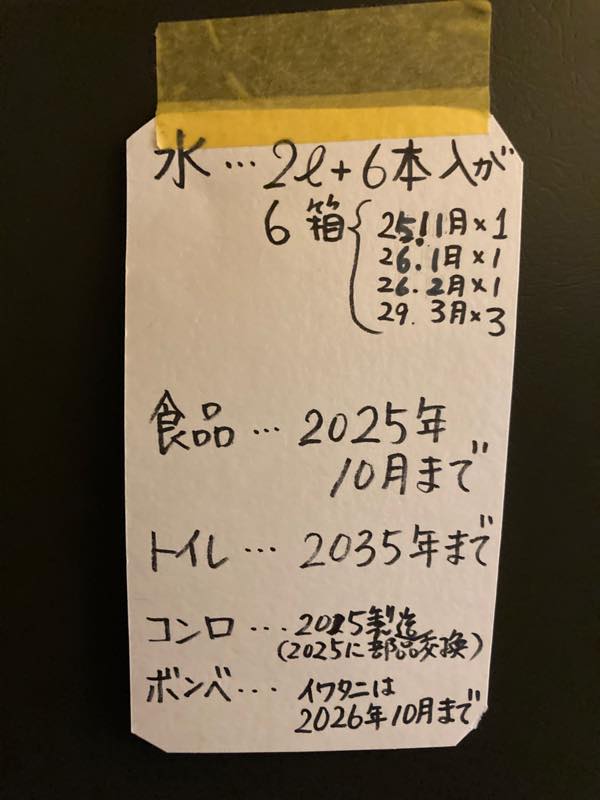 水…2ℓ+6本入が
6箱{25.11月×1
26.1月×1
26.2月×1
29.3月×3
食品…2025年
10月まで
トイレ…2035年まで
コンロ…2015製造
(2025に部品交換)
ボンベ…イワタニは
2026年10月まで